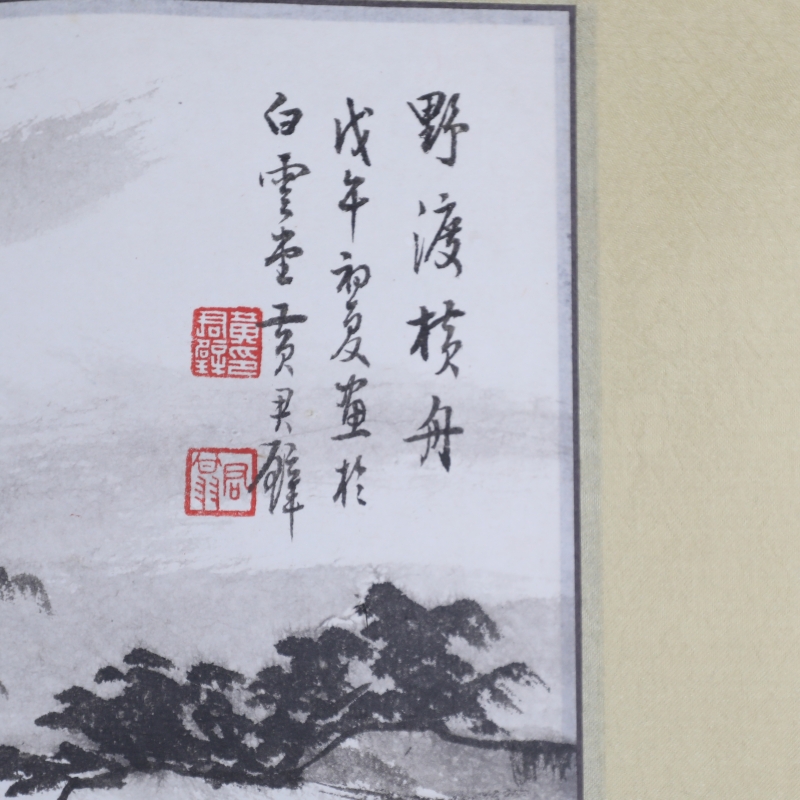 野渡橫舟
戊午初夏畫於
白雲堂黃君璧
黃君璧印
君翁